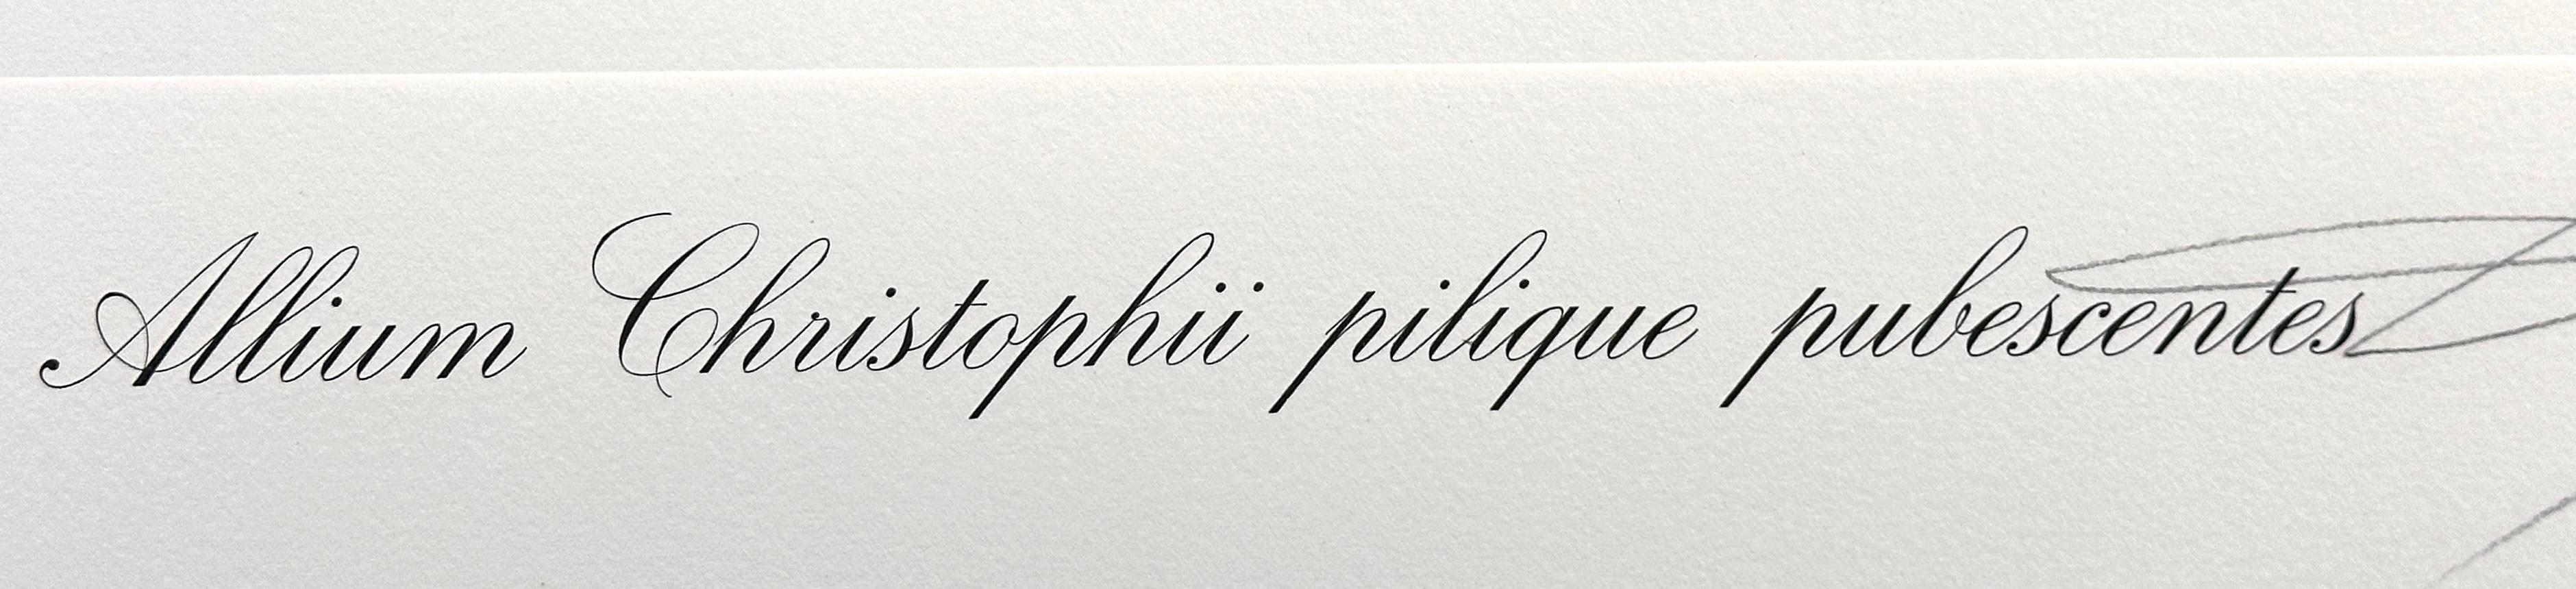 Allium Christophii pilique pubescentes